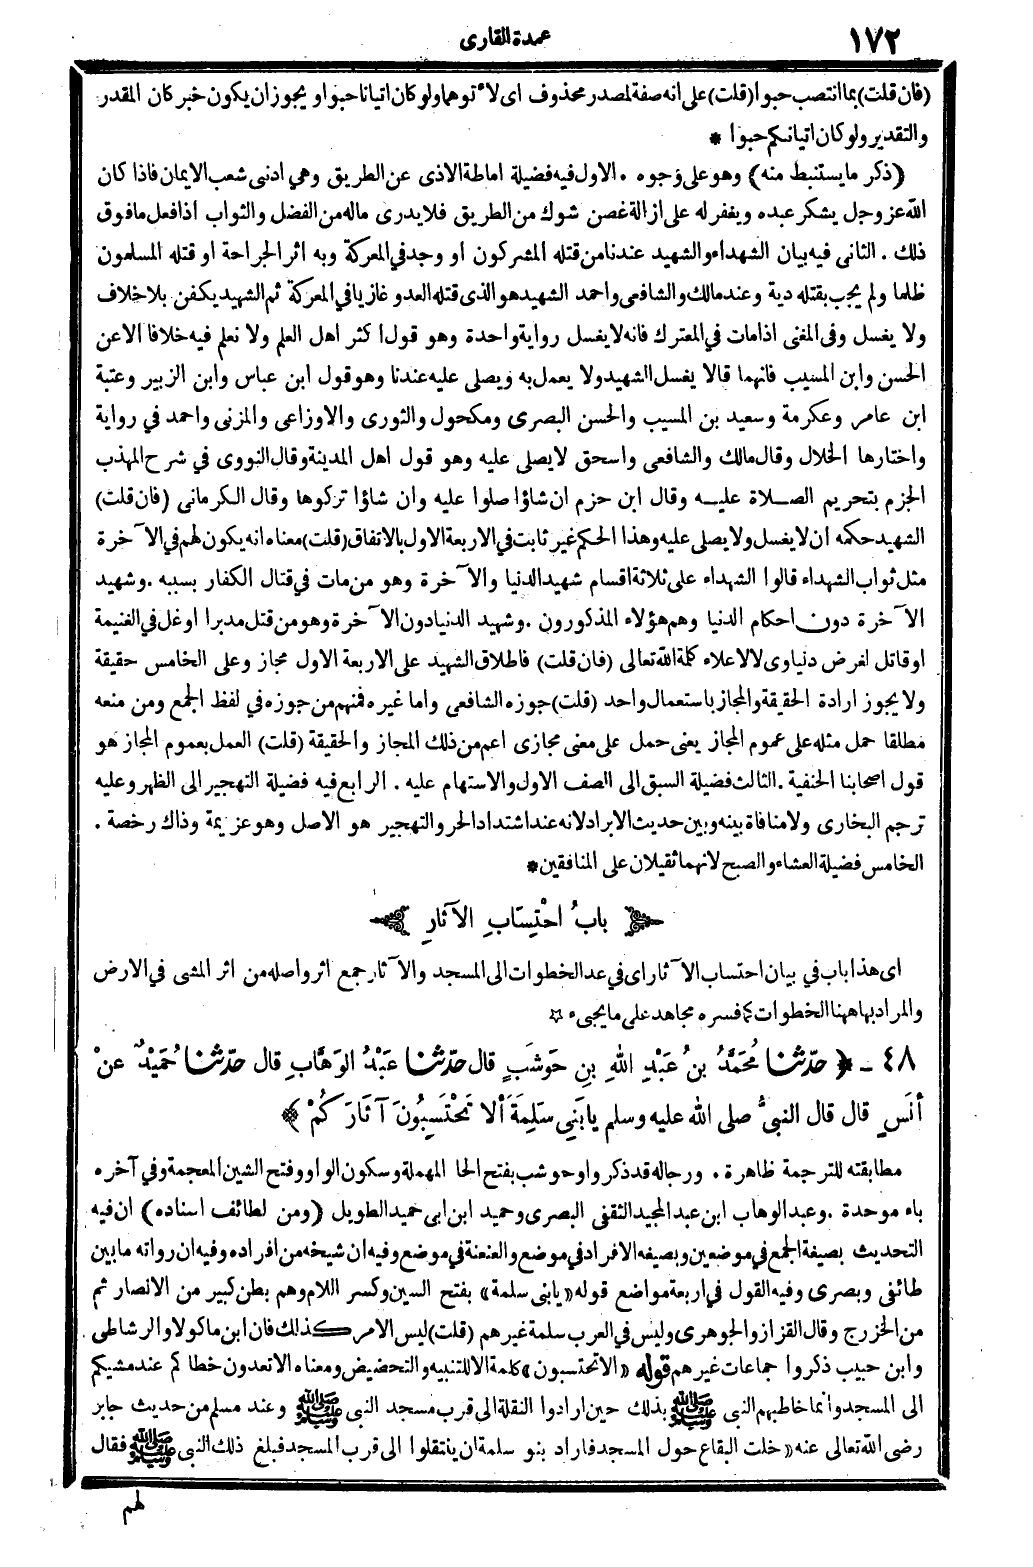 ١٧٢
عمدة القارى
(فان قلت) بما انتصب حبوا (قلت) على انه صفة لمصدر محذوف اى لأتوهما ولو كان اتيانا حبوا و يجوز ان يكون خبر كان المقدر
والتقدير ولو كان اتيانكم حبوا *
(ذكر ما يستنبط منه) وهو على وجوه . الاول فيه فضيلة اماطة الاذى عن الطريق وهي ادنى شعب الايمان فاذا كان
الله عز وجل يشكر عبده ويغفر له على ازالة غصن شوك من الطريق فلا يدرى ماله من الفضل والثواب اذا فعل ما فوق
ذلك . الثانى فيه بيان الشهداء والشهيد عندنا من قتله المشركون او وجد في المعركة وبه اثر الجراحة او قتله المسلمون
ظلما ولم يجب بقتله دية وعند مالك والشافعى واحمد الشهيد هو الذى قتله العدو غازيا في المعركة ثم الشهيد يكفن بلا خلاف
ولا يغسل وفى المغنى اذا مات في المعترك فانه لا يغسل رواية واحدة وهو قول اكثر اهل العلم ولا نعلم فيه خلافا الا عن
الحسن وابن المسيب فانهما قالا يغسل الشهيد ولا يعمل به ويصلى عليه عندنا وهو قول ابن عباس وابن الزبير وعتبة
ابن عامر وعكرمة وسعيد بن المسيب والحسن البصرى ومكحول والثورى والاوزاعى والمزنى واحمد في رواية
واختارها الخلال وقال مالك والشافعى واسحق لا يصلى عليه وهو قول اهل المدينة وقال النووى في شرح المهذب
الجزم بتحريم الصلاة عليه وقال ابن حزم ان شاؤا صلوا عليه وان شاؤا تركوها وقال الكرمانى (فان قلت)
الشهيد حكمه ان لا يغسل ولا يصلى عليه وهذا الحكم غير ثابت في الاربعة الاول بالاتفاق (قلت) معناه انه يكون لهم في الآخرة
مثل ثواب الشهداء قالوا الشهداء على ثلاثة اقسام شهيد الدنيا والآخرة وهو من مات في قتال الكفار بسببه . وشهيد
الآخرة دون احكام الدنيا وهم هؤلاء المذكورون . وشهيد الدنيا دون الآخرة وهو من قتل مدبرا او غل في الغنيمة
او قاتل لغرض دنياوى لا لاعلاء كلمة الله تعالى (فان قلت) فاطلاق الشهيد على الاربعة الاول مجاز وعلى الخامس حقيقة
ولا يجوز ارادة الحقيقة والمجاز باستعمال واحد (قلت) جوزه الشافعى واما غيره فمنهم من جوزه في لفظ الجمع ومن منعه
مطلقا حمل مثله على عموم المجاز يعنى حمل على معنى مجازى اعم من ذلك المجاز والحقيقة (قلت) العمل بعموم المجاز هو
قول اصحابنا الحنفية . الثالث فضيلة السبق الى الصف الاول والاستهام عليه . الرابع فيه فضيلة التهجير الى الظهر وعليه
ترجم البخارى ولا منافاة بينه وبين حديث الابراد لانه عند اشتداد الحر والتهجير هو الاصل وهو عزيمة وذاك رخصة .
الخامس فضيلة العشاء والصبح لانهما ثقيلان على المنافقين *
بابُ احْتِسَابِ الآثارِ
اى هذا باب في بيان احتساب الآثار اى في عد الخطوات الى المسجد والآثار جمع اثر واصله من اثر المشى في الارض
والمراد بها ههنا الخطوات كما فسره مجاهد على ما يجىء ☆
٤٨ - ﴿ حدّثنا مُحَمَّدُ بنُ عَبْدِ اللهِ بنِ حَوشَبٍ قال حدّثنا عَبْدُ الوَهَّابِ قال حدّثنا حُمَيْدٌ عنْ
أنَسٍ قال قال النبىُّ صلى الله عليه وسلم يا بَنِي سَلِمَةَ ألا تَحْتَسِبُونَ آثارَكُمْ ﴾
مطابقته للترجمة ظاهرة . ورجاله قد ذكروا وحوشب بفتح الحا المهملة وسكون الواو وفتح الشين المعجمة وفي آخره
باء موحدة . وعبد الوهاب ابن عبد المجيد الثقفى البصرى وحميد ابن ابى حميد الطويل (ومن لطائف اسناده) ان فيه
التحديث بصيغة الجمع في موضعين وبصيغة الافراد في موضع والعنعنة في موضع وفيه ان شيخه من افراده وفيه ان رواته ما بين
طائفى وبصرى وفيه القول في اربعة مواضع قوله «يا بنى سلمة» بفتح السين وكسر اللام وهم بطن كبير من الانصار ثم
من الخزرج وقال القزاز والجوهرى وليس في العرب سلمة غيرهم (قلت) ليس الامر كذلك فان ابن ماكولا والرشاطى
وابن حبيب ذكروا جماعات غيرهم قوله «الا تحتسبون» كلمة الا للتنبيه والتحضيض ومعناه الا تعدون خطاكم عند مشيكم
الى المسجد وانما خاطبهم النبى ﷺ بذلك حين ارادوا النقلة الى قرب مسجد النبى ﷺ وعند مسلم من حديث جابر
رضى الله تعالى عنه «خلت البقاع حول المسجد فاراد بنو سلمة ان ينتقلوا الى قرب المسجد فبلغ ذلك النبى ﷺ فقال
لهم